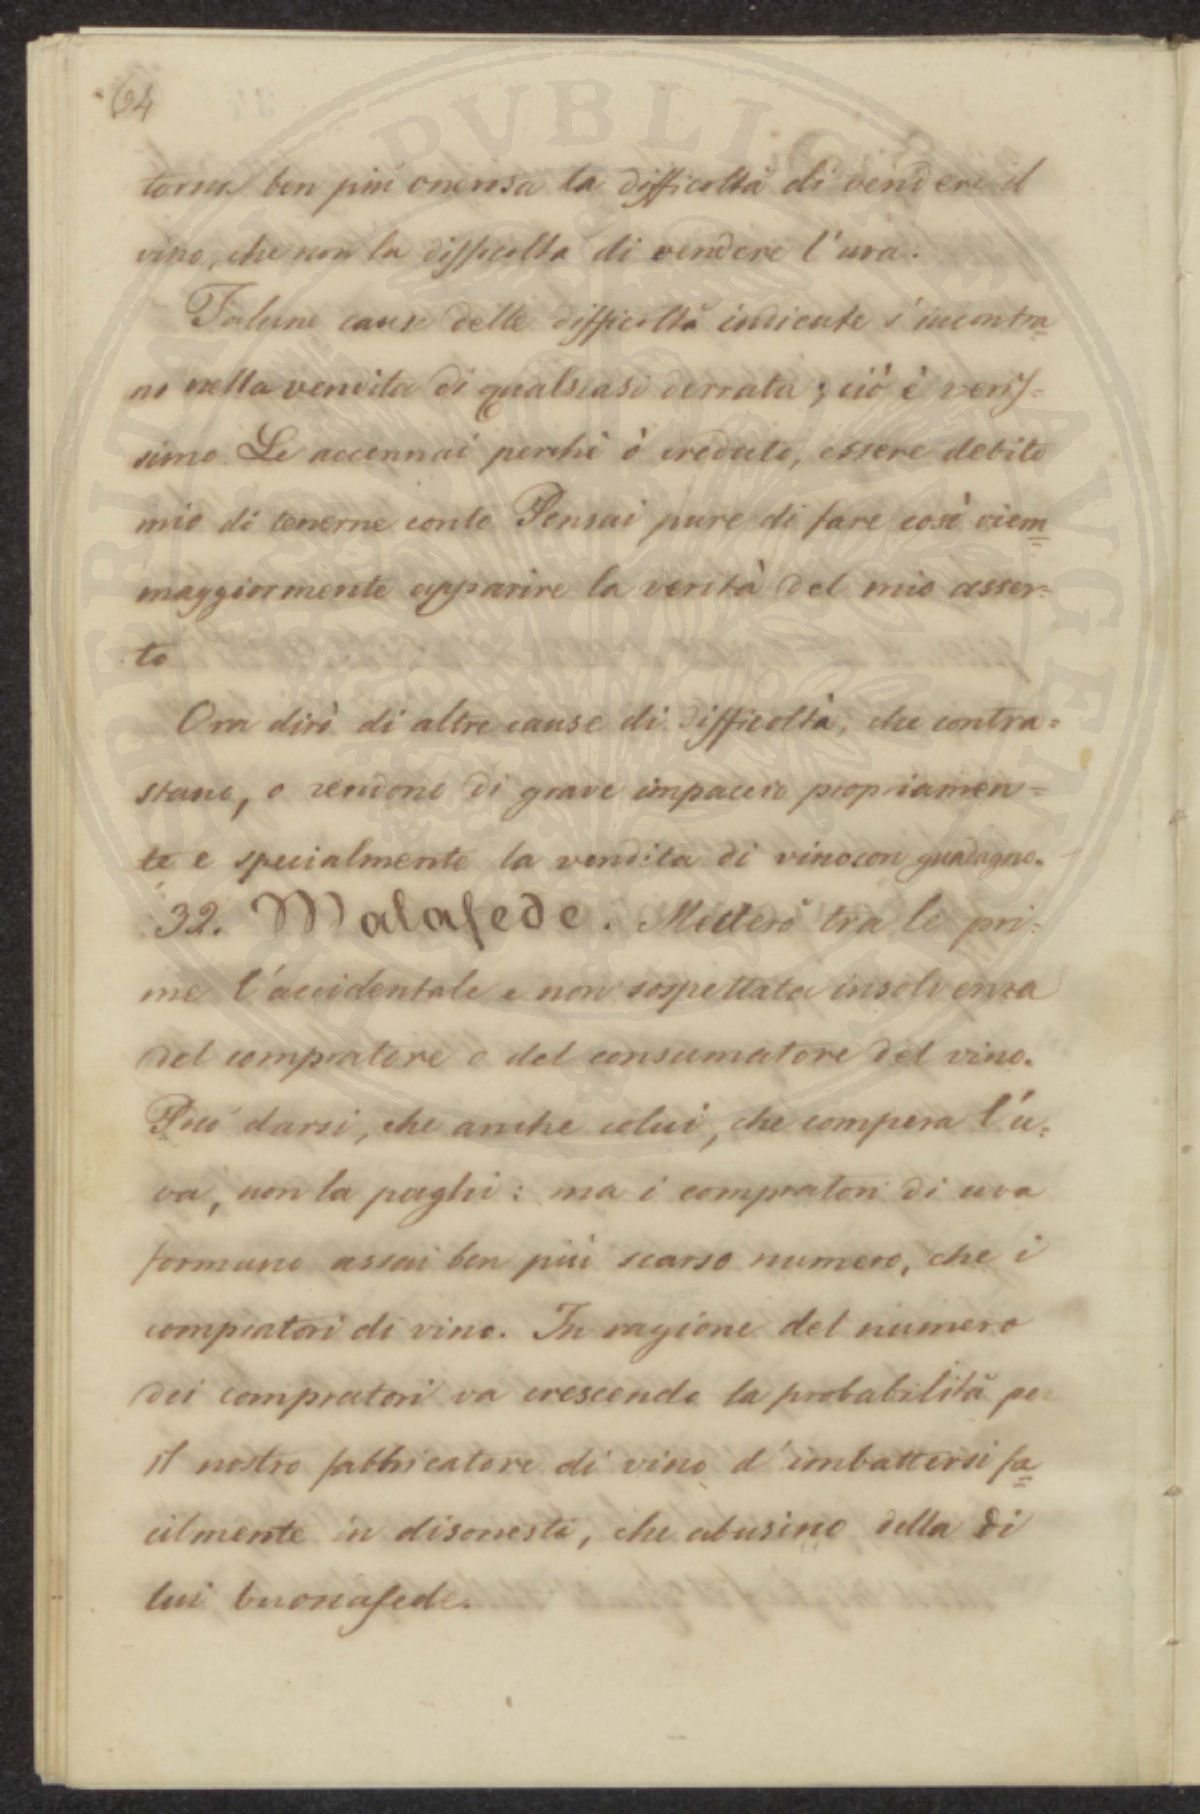 64
torna ben più onerosa la difficoltà di vendere il
vino, che non la difficoltà di vendere l'uva.
Talune cause delle difficoltà indicate s'incontra=
no nella vendita di qualsiasi derrata; ciò è veris=
simo. Le accennai perchè ò creduto, essere debito
mio di tenerne conto. Pensai pure di fare così viem=
maggiormente apparire la verità del mio asser=
to
Ora dirò di altre cause di difficoltà, che contra=
stano, o rendono di grave impaccio propriamen=
te e specialmente la vendita di vino con guadagno.
32. Malafede. Metterò tra le pri=
me l'accidentale e non sospettata insolvenza
del compratore o del consumatore del vino.
Può darsi, che anche colui, che compera l'u=
va, non la paghi: ma i compratori di uva
formano assai ben più scarso numero, che i
compratori di vino. In ragione del numero
dei compratori va crescendo la probabilità per
il nostro fabbricatore di vino d'imbattersi fa=
cilmente in disonesti, che abusino della di
lui buonafede.
PVBLICAE AVGENDO LIBERITATI